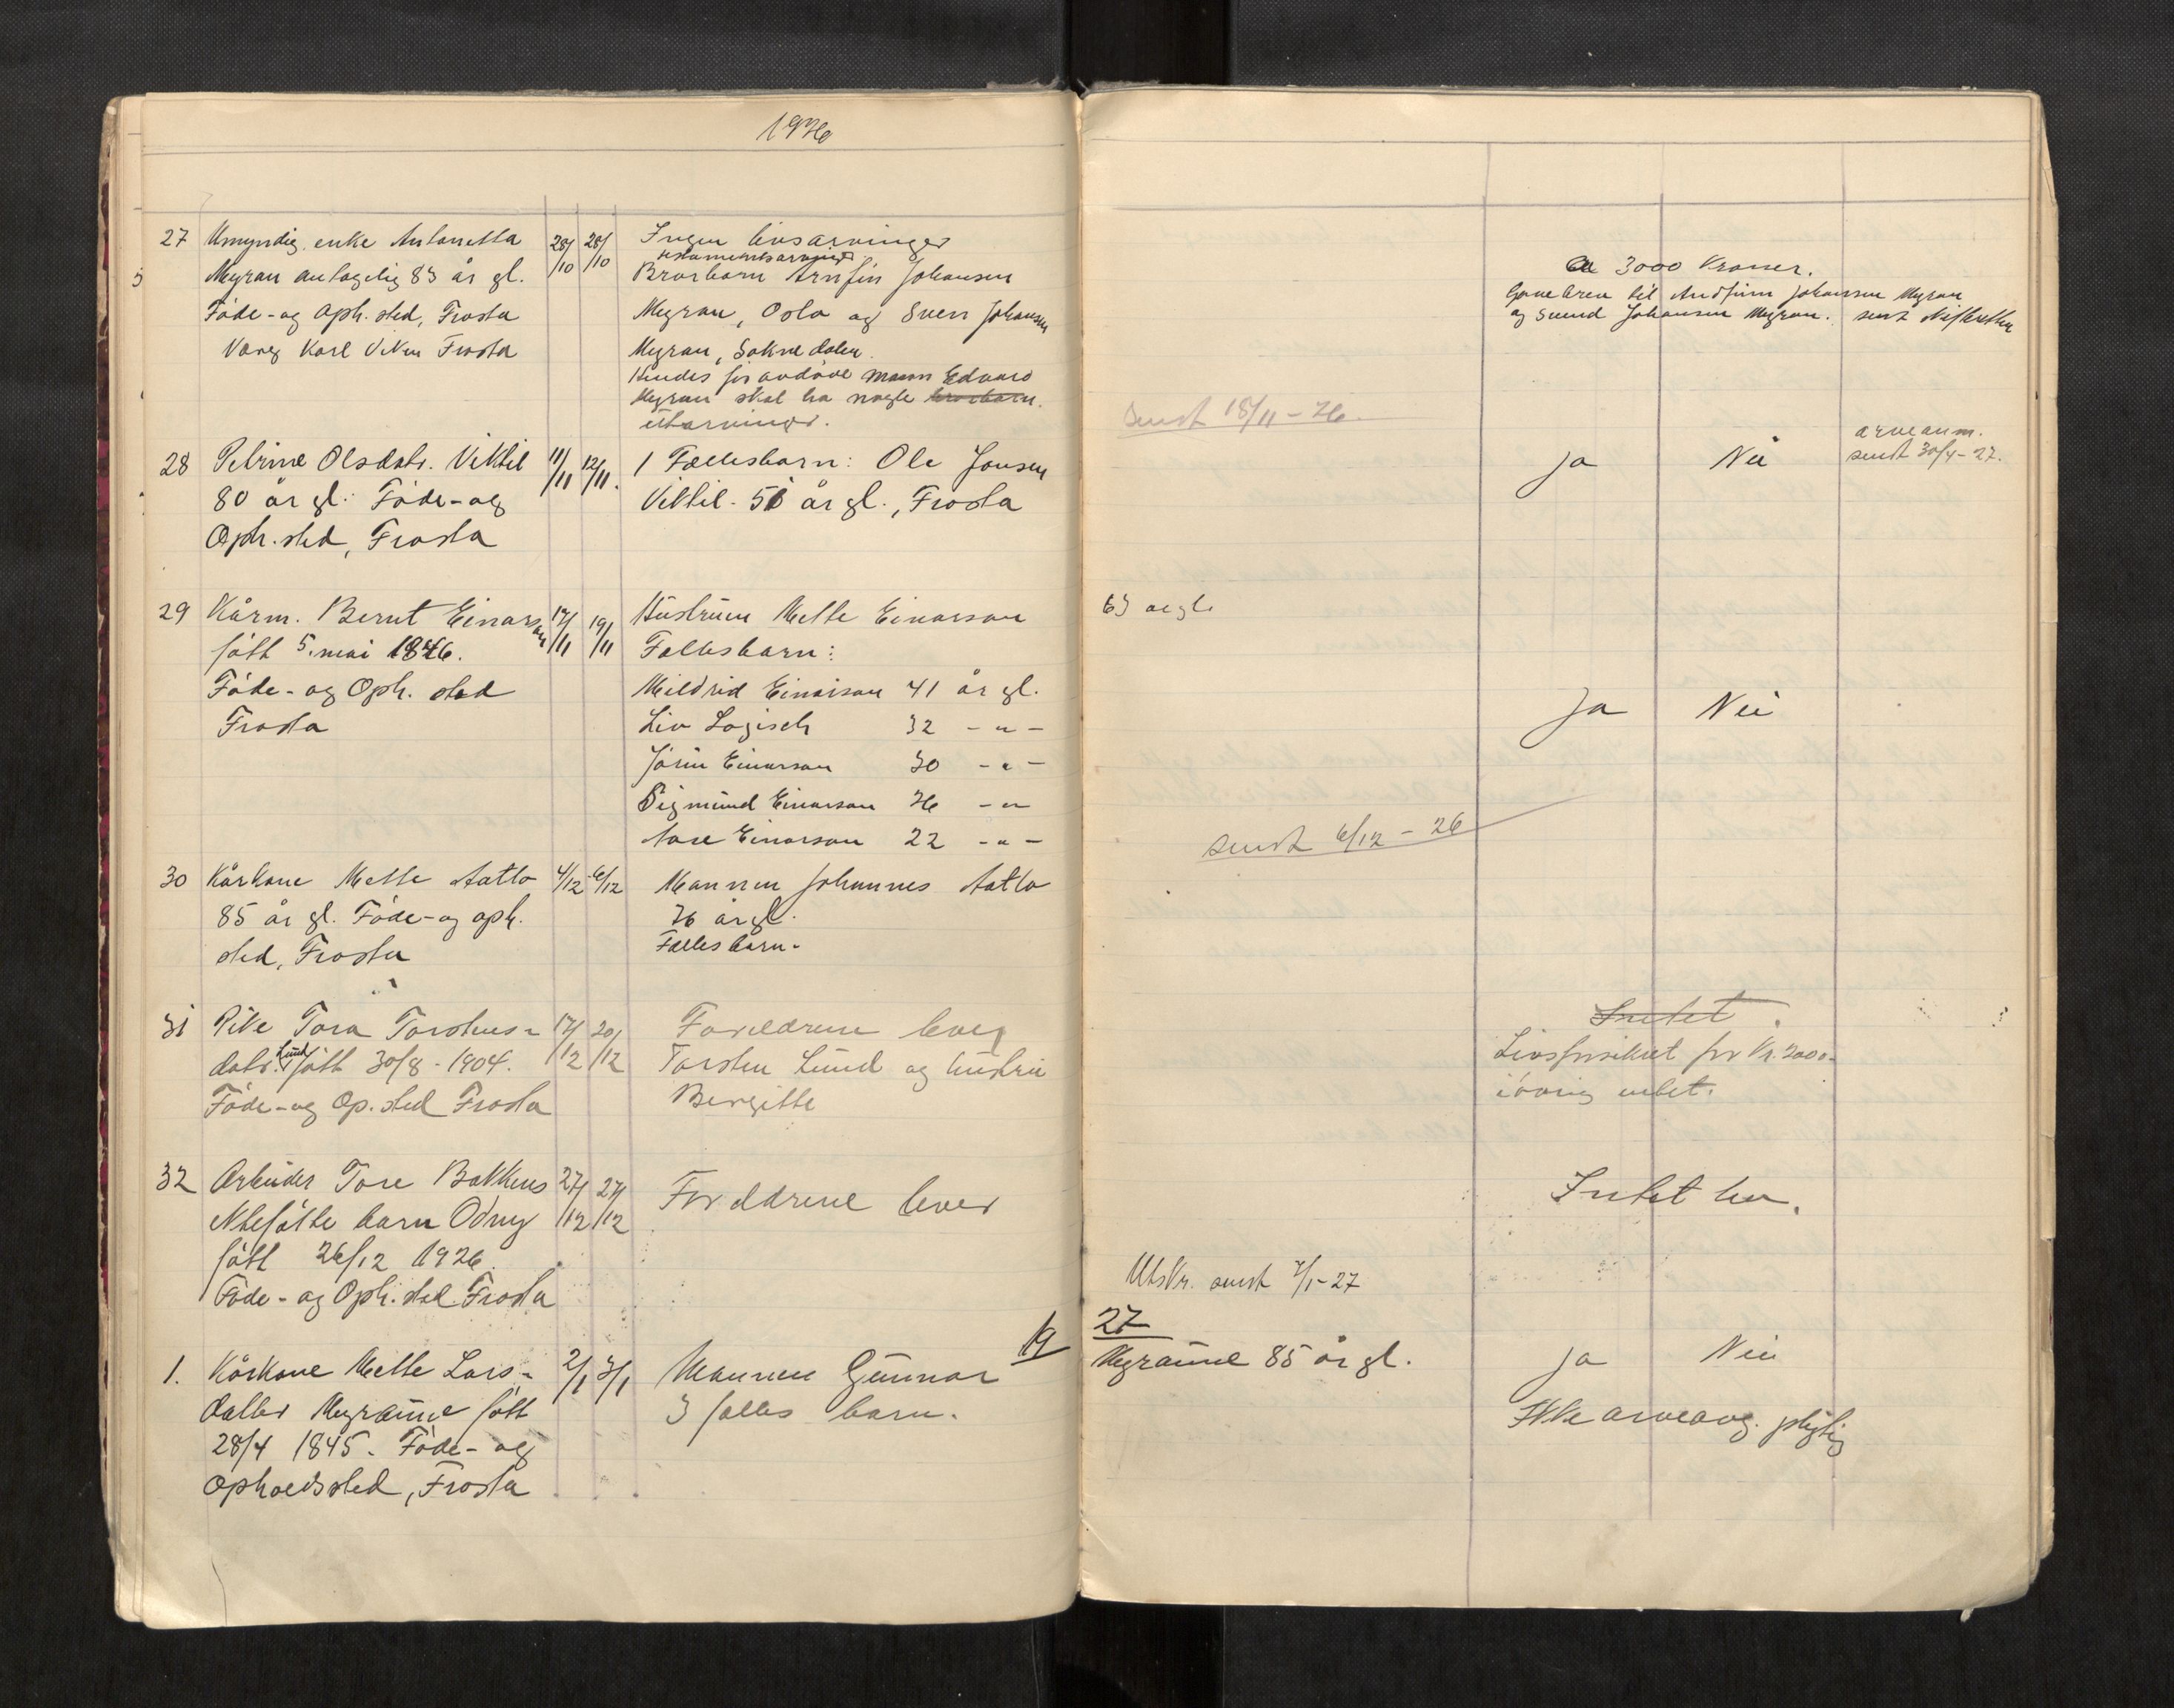 1926
27 Umyndig enke Antonetta 28/10 28/10 Ingen livsarvinger
testamentsarvinger
Myran antagelig 83 år gl. Brorbarn Arnfin Johansen
Føde- og Oph. sted, Frosta Myran, Oslo og Sven Johansen
Verg Karl Viken Frosta Myran, Soknedalen.
Hendes for avdøde mann Edvard
Myran skal ha nogle brorbarn.
utarvinger.
28 Petrine Olsdatr. Viktil 11/11 12/11. 1 Fællesbarn: Ole Jonsen
80 år gl. Føde- og Viktil - 51 år gl., Frosta
Oph. sted, Frosta
29 Kårm. Bernt Einarson 17/11 19/11 Hustruen Mette Einarson
født 5. mai 1846. Fallesbarn:
Føde- og Oph. sted Mildrid Einarson 41 år gl.
Frosta Liv Logisch 32 - " -
Jorun Einarson 30 - " -
Sigmund Einarson 26 - " -
Aase Einarson 22 - " -
30 Kårkone Mette Aatlo 4/12 6/12 Mannen Johannes Aatlo
85 år gl. Føde- og oph. 76 år gl.
sted, Frosta Fælles barn -
31 Pike Tora Torstens- 17/12 20/12 Foreldrene lever
datr. Lund født 30/8 - 1904. Torsten Lund og hustru
Føde- og Op. sted Frosta Bergitte
32 Arbeider Tore Bakkens 27/12 27/12 Foreldrene lever
Nyfødte barn Odny
født 26/12 1926.
Føde- og Oph. sted. Frosta
19
1. Kårkone Mette Lars- 2/1 3/1 Mannen Gunnar
datter Myraune født 3 falles barn.
28/4 1845. Føde- og
Opholdssted, Frosta
Ca 3000 Kroner.
Gavebrev til Andfinn Johansen Myran
og Svend Johansen Myran. sent Skifteretten
Sendt 18/11 - 26.
Ja Nei arveanm.
sendt 30/4 - 27.
63 år gl.
Ja Nei
sendt 6/12 - 26
Intet
Livsforsikret for Kr. 2000.-
iøvrig intet.
Intet her.
Utskr. sendt 7/1 - 27
27
Myraune 85 år gl. Ja Nei
Ikke arveavg. pligtig